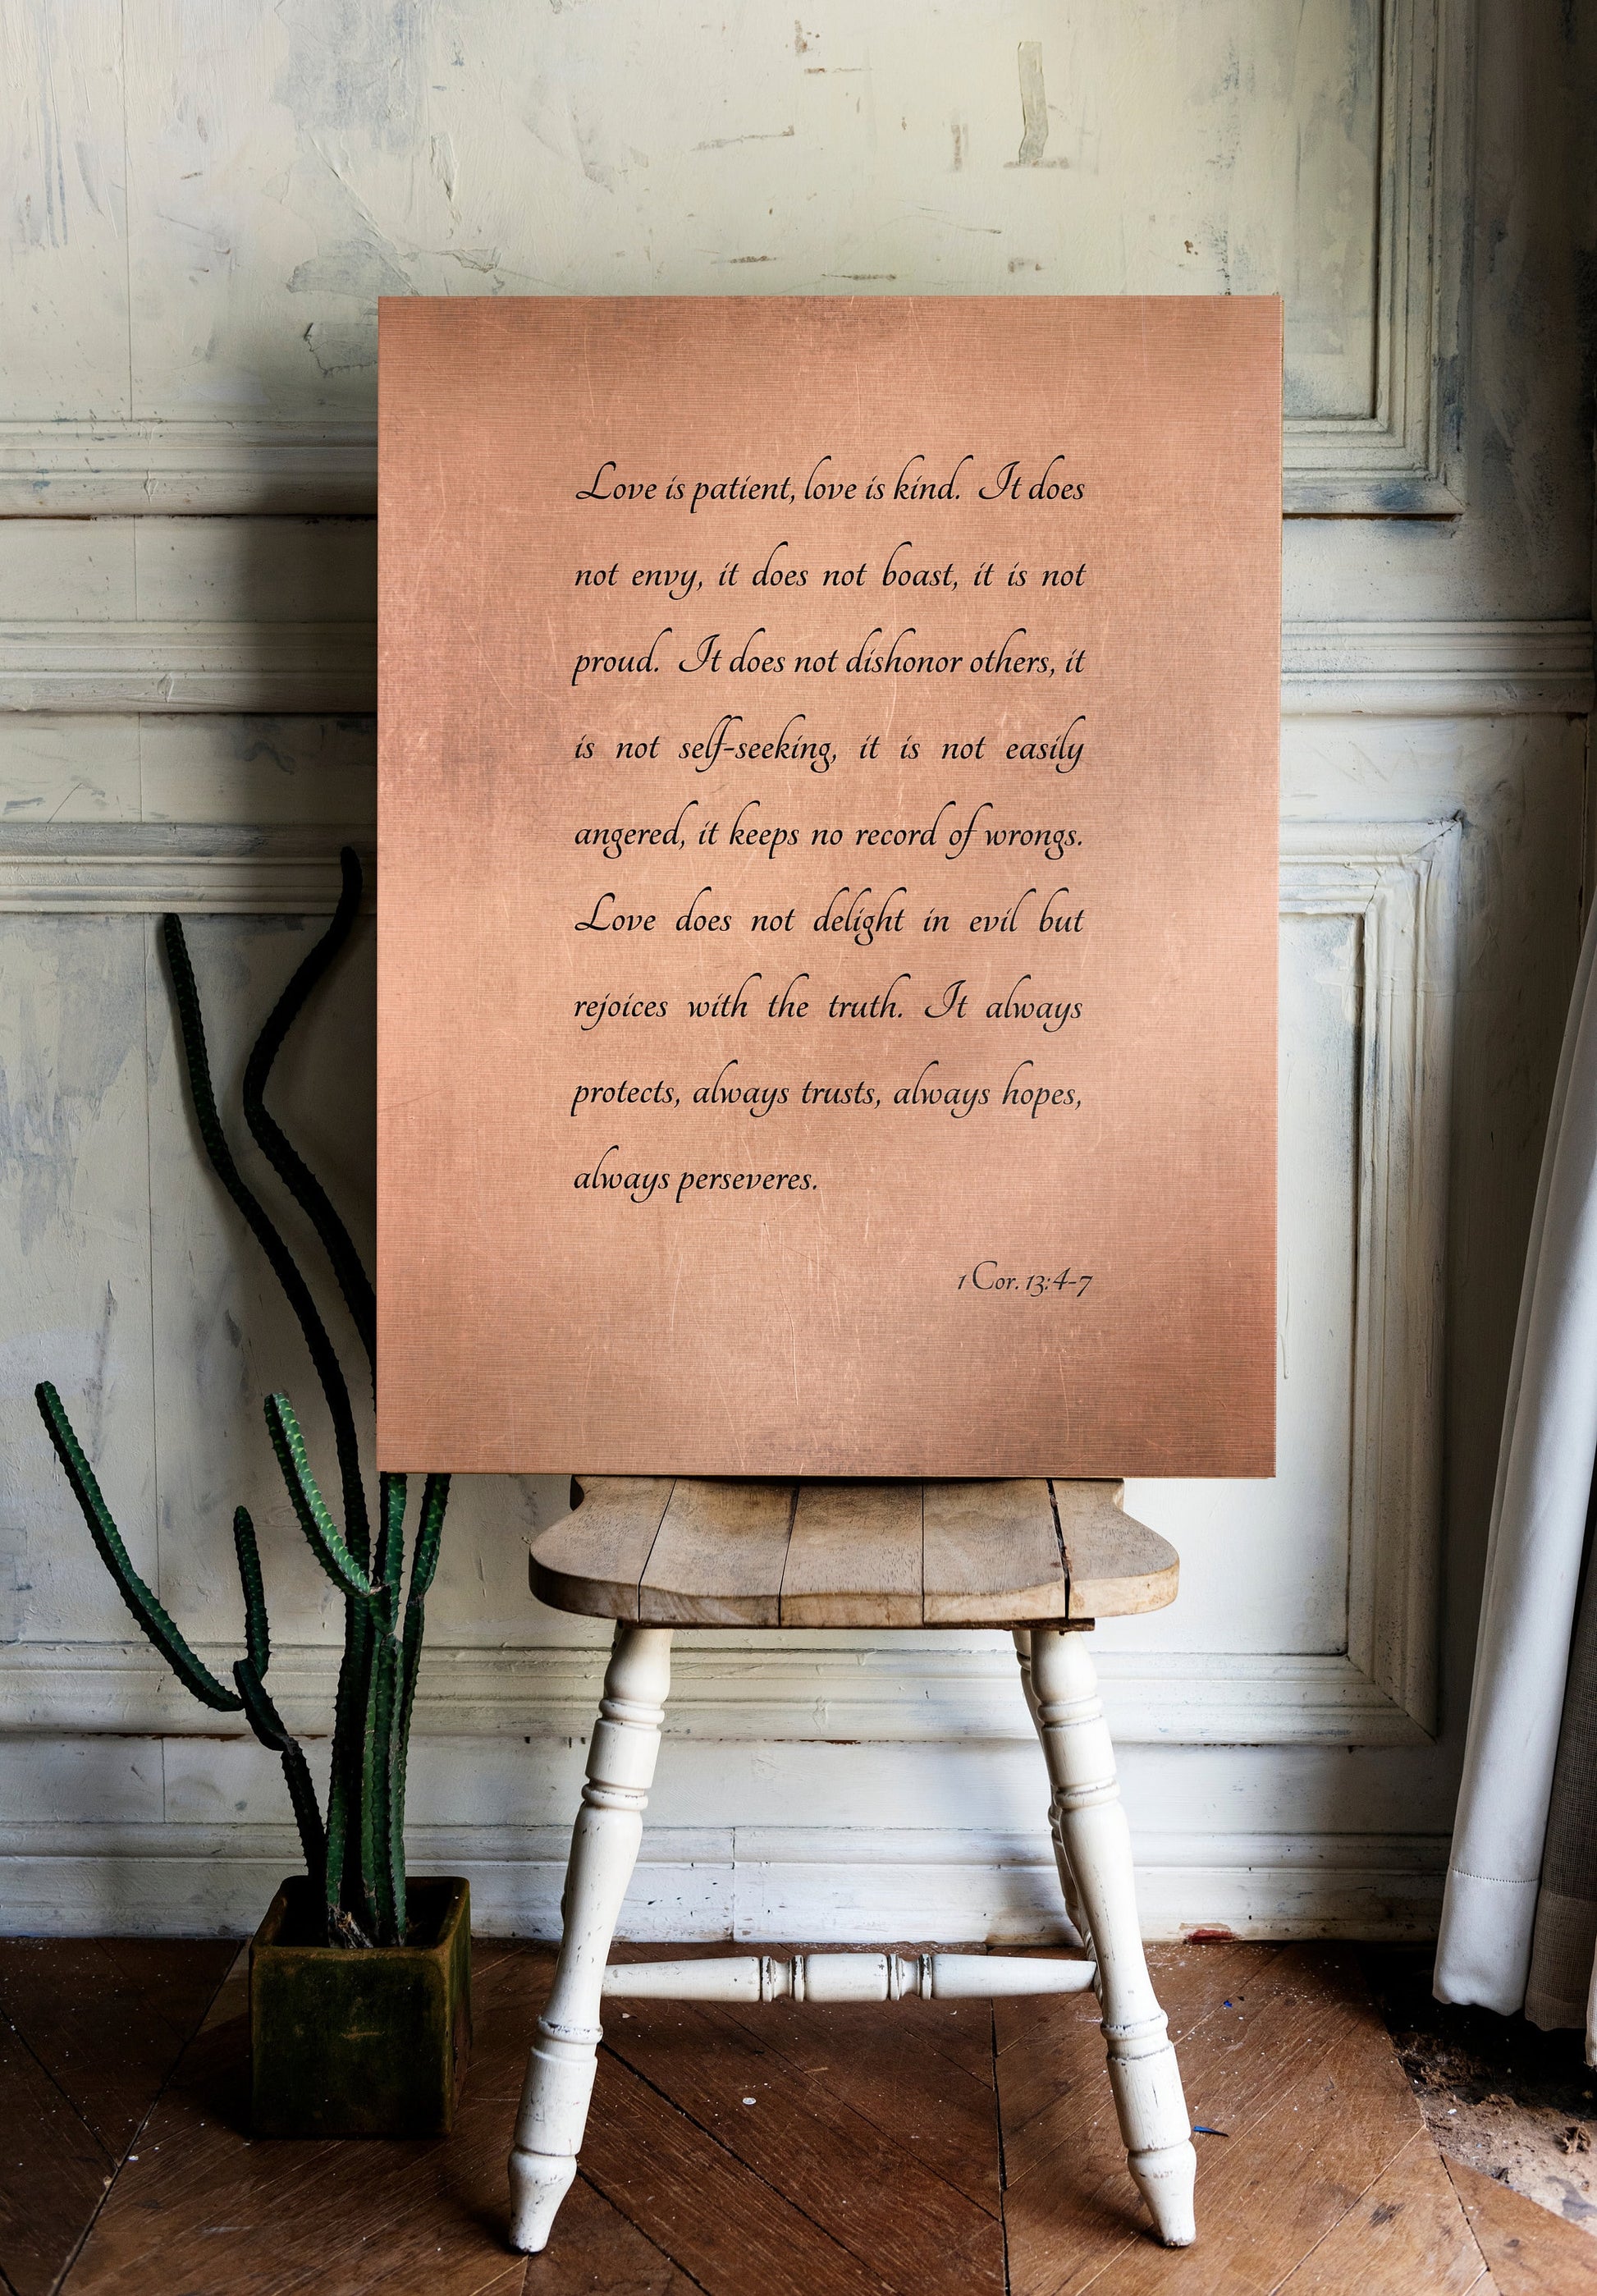 Love is patient, love is kind. It does
not envy, it does not boast, it is not
proud. It does not dishonor others, it
is not self-seeking, it is not easily
angered, it keeps no record of wrongs.
Love does not delight in evil but
rejoices with the truth. It always
protects, always trusts, always hopes,
always perseveres.
1 Cor. 13:4-7